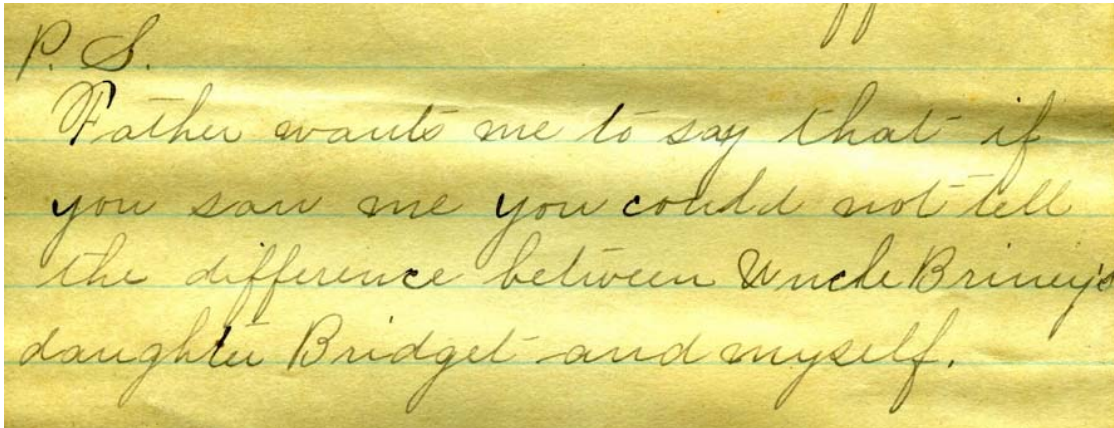 P. S.
Father wants me to say that if
you saw me you could not tell
the difference between Uncle Briney's
daughter Bridget and myself.